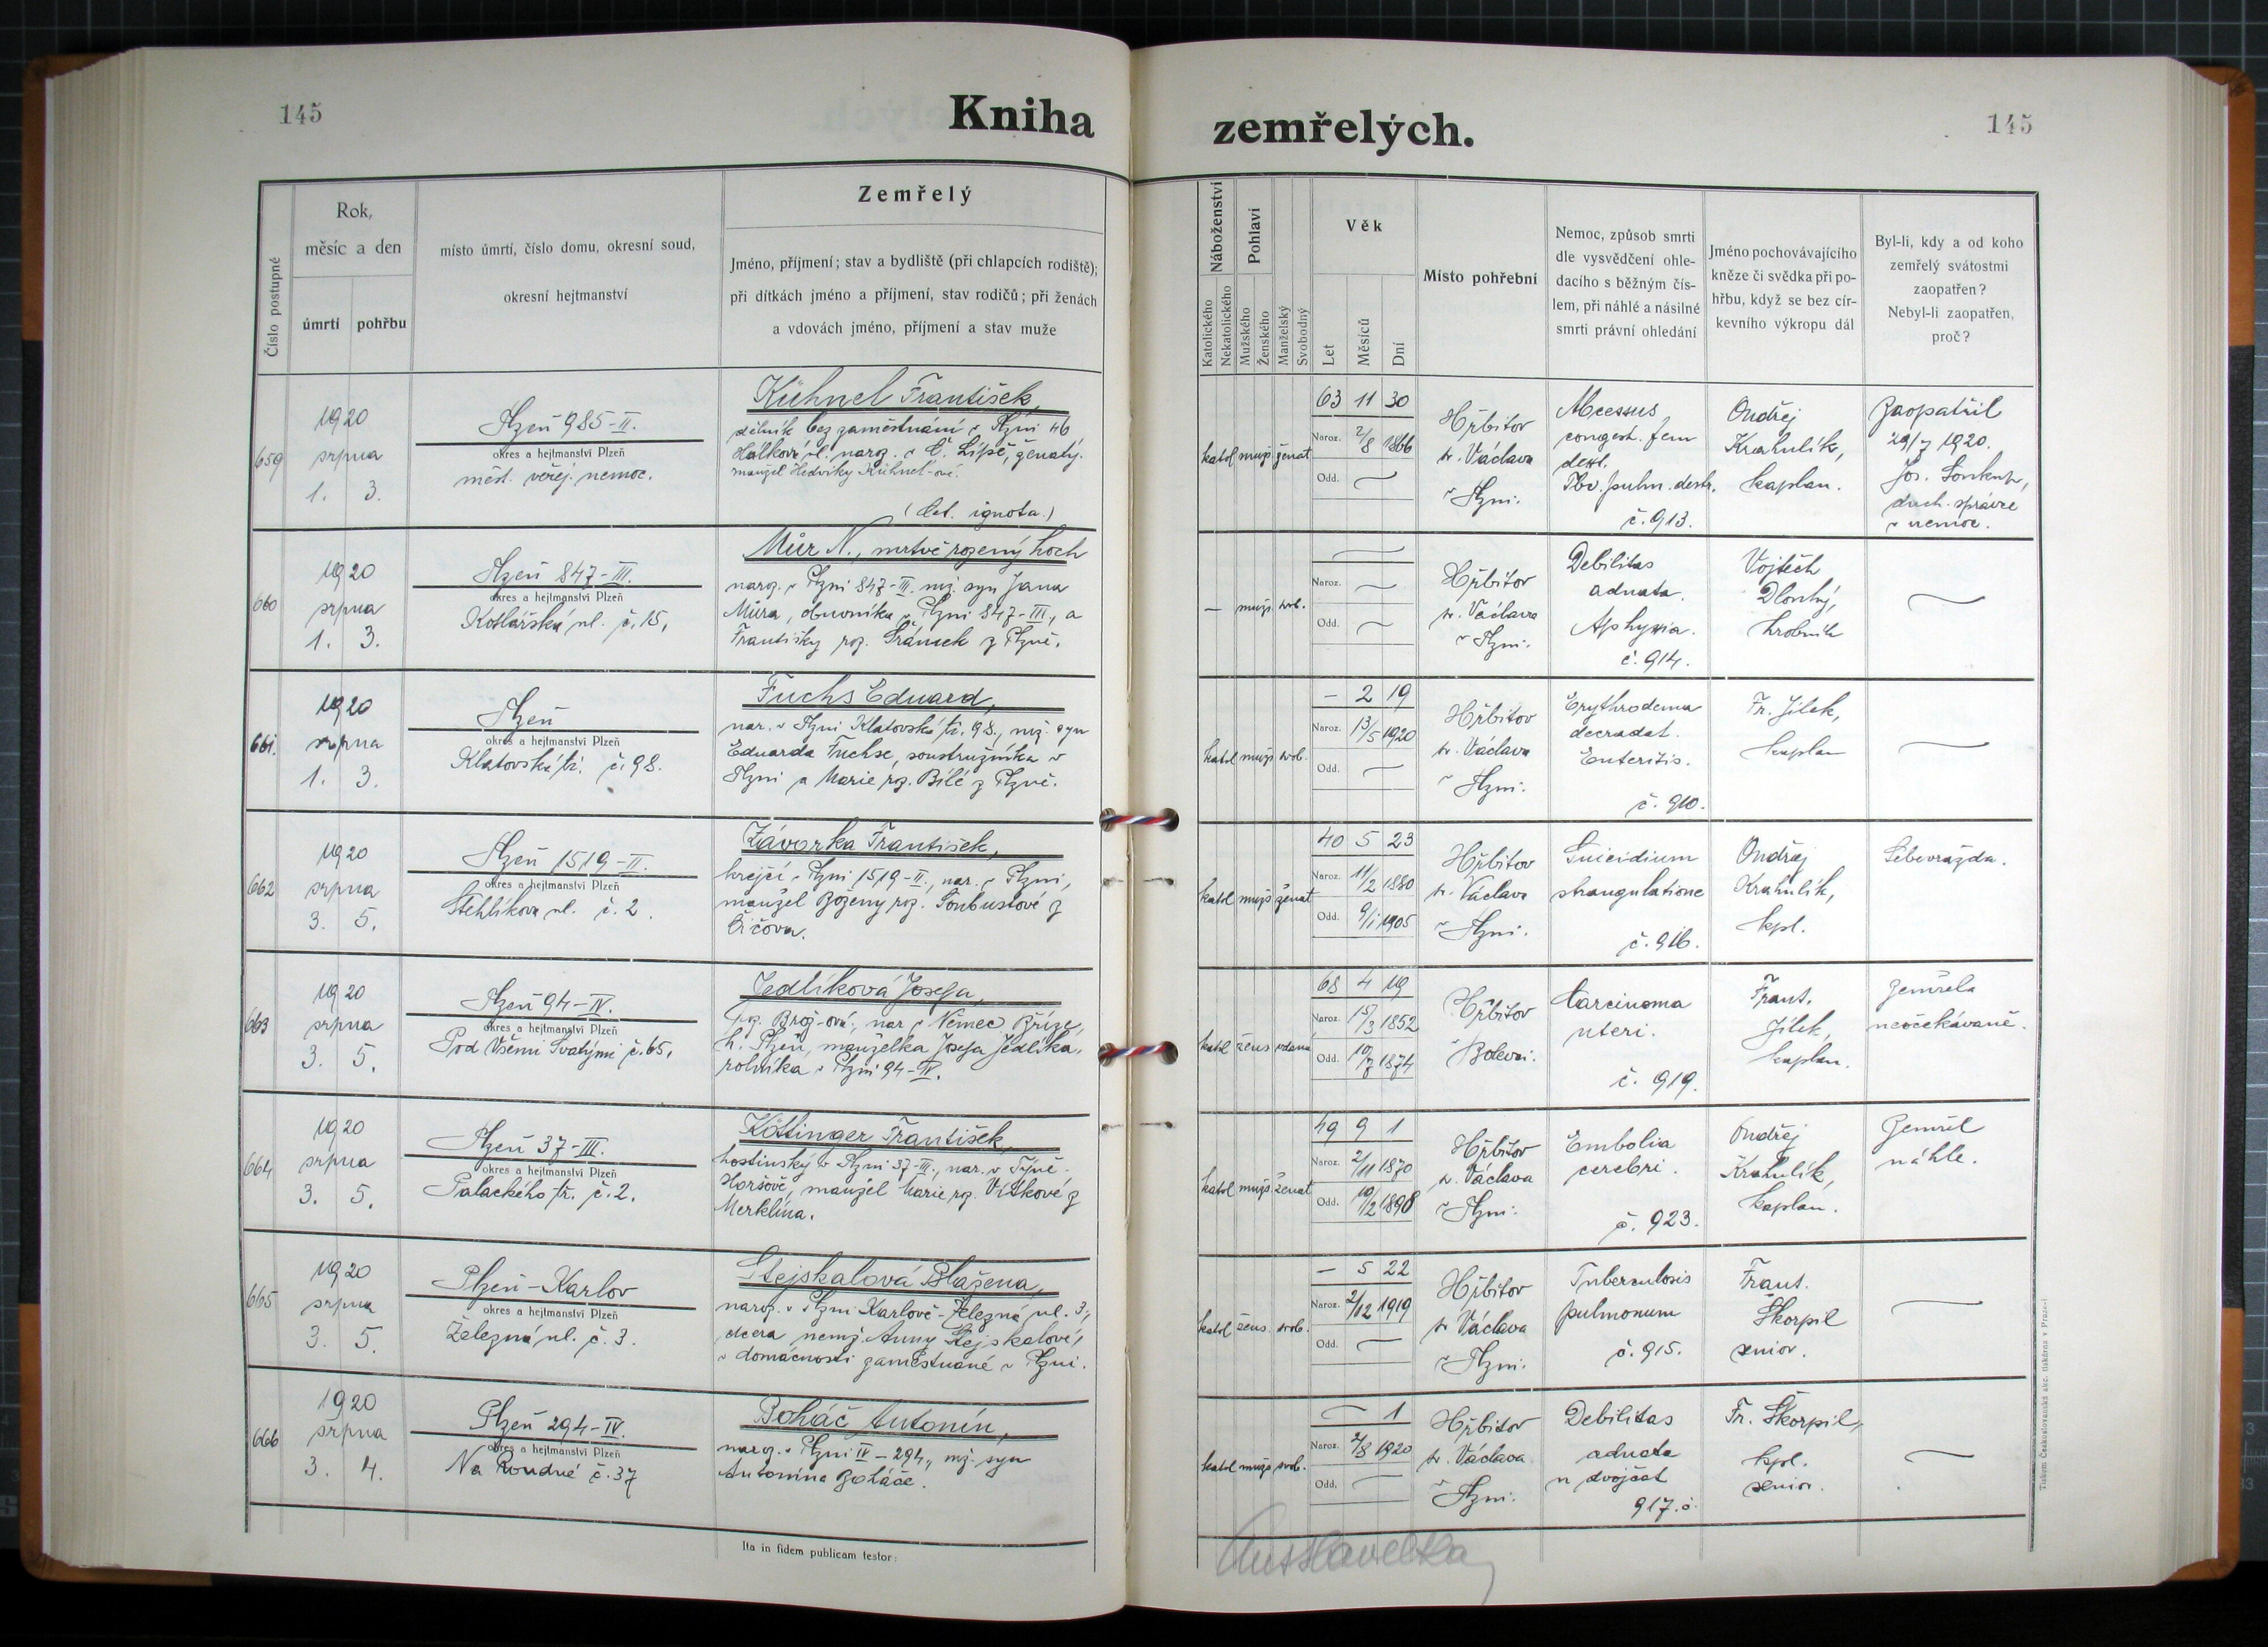 145
Kniha
zemřelých.
145
Číslo postupné
Rok,
měsíc a den
úmrtí
pohřbu
místo úmrtí, číslo domu, okresní soud,
okresní hejtmanství
Zemřelý
Jméno, příjmení; stav a bydliště (při chlapcích rodiště);
při dítkách jméno a příjmení, stav rodičů; při ženách
a vdovách jméno, příjmení a stav muže
Náboženství
Katolického
Nekatolického
Pohlaví
Mužského
Ženského
Manželský
Svobodný
Věk
Let
Měsíců
Dní
Místo pohřební
Nemoc, způsob smrti
dle vysvědčení ohle-
dacího s běžným čís-
lem, při náhlé a násilné
smrti právní ohledání
Jméno pochovávajícího
kněze či svědka při po-
hřbu, když se bez cír-
kevního výkropu dál
Byl-li, kdy a od koho
zemřelý svátostmi
zaopatřen?
Nebyl-li zaopatřen,
proč?
659
1920
srpna
1. 3.
Plzeň 985-II.
okres a hejtmanství Plzeň
měst. veřej. nemoc.
Kühnel František,
dělník bez zaměstnání v Plzni 46
Hálkova ul. naroz. v Č. Lípě, ženatý.
manžel Hedviky Kühnel-ové.
(Cet. ignota.)
katol muž ženat
63 11 30
Naroz. 2/8 1866
Odd.
Hřbitov
sv. Václava
v Plzni.
Abcessus
congest. fem
dext.
Tbc. pulm. destr.
č. 913.
Ondřej
Krahulík,
kaplan.
Zaopatřil
29/7 1920.
Jos.
duch. správce
v nemoc.
660
1920
srpna
1. 3.
Plzeň 847-III.
okres a hejtmanství Plzeň
Kotlářská ul. č. 15.
Můr N., mrtvě rozený hoch
naroz. v Plzni 847-III. mž. syn Jana
Můra, obuvníka v Plzni 847-III., a
Františky roz. Šrámek z Plzně.
— muž. svob.
Naroz.
Odd.
Hřbitov
sv. Václava
v Plzni.
Debilitas
adnata.
Asphyxia.
č. 914.
Vojtěch
Dlouhý,
hrobník
661.
1920
srpna
1. 3.
Plzeň
okres a hejtmanství Plzeň
Klatovská tř. č. 98.
Fuchs Eduard,
nar. v Plzni Klatovská tř. 98., mž. syn
Eduarda Fuchse, soustružníka v
Plzni a Marie roz. Bílé z Plzně.
katol muž svob.
— 2 19
Naroz. 13/5 1920
Odd.
Hřbitov
sv. Václava
v Plzni.
Erythrodema
decradat.
Enteritis.
č. 910.
Fr. Jílek,
kaplan
662
1920
srpna
3. 5.
Plzeň 1519-II.
okres a hejtmanství Plzeň
Stehlíkova ul. č. 2.
Závorka František,
krejčí v Plzni 1519-II., nar. v Plzni,
manžel Boženy roz. Šoubustové z
Čičova.
katol muž ženat
40 5 23
Naroz. 11/2 1880
Odd. 9/1 1905
Hřbitov
sv. Václava
v Plzni.
Suicidium
strangulatione
č. 916.
Ondřej
Krahulík,
kpl.
Sebevražda.
663
1920
srpna
3. 5.
Plzeň 94-IV.
okres a hejtmanství Plzeň
Pod Všemi Svatými č. 65.
Jedlíková Josefa,
roz. Brož-ová, nar. v Němec. Bříze,
h. Plzeň, manželka Josefa Jedlíka,
rolníka v Plzni 94-IV.
katol žens vdaná
68 4 19
Naroz. 15/3 1852
Odd. 10/7 1874
Hřbitov
v Bolevci.
Carcinoma
uteri.
č. 919.
Frant.
Jílek,
kaplan.
Zemřela
neočekávaně.
664
1920
srpna
3. 5.
Plzeň 37-III.
okres a hejtmanství Plzeň
Palackého tř. č. 2.
Köttinger František,
hostinský v Plzni 37-III., nar. v Týně
Horšově, manžel Marie roz. Vítkové z
Merklína.
katol muž ženat
49 9 1
Naroz. 2/11 1870
Odd. 10/2 1898
Hřbitov
sv. Václava
v Plzni.
Embolia
cerebri.
č. 923.
Ondřej
Krahulík,
kaplan.
Zemřel
náhle.
665
1920
srpna
3. 5.
Plzeň-Karlov
okres a hejtmanství Plzeň
Železná ul. č. 3.
Stejskalová Blažena,
naroz. v Plzni Karlově-Železná ul. 3.,
dcera nemž. Anny Stejskalové,
v domácnosti zaměstnané v Plzni.
katol žens. svob.
— 5 22
Naroz. 2/12 1919
Odd.
Hřbitov
sv. Václava
v Plzni.
Tuberculosis
pulmonum
č. 915.
Frant.
Škorpil
senior.
666
1920
srpna
3. 4.
Plzeň 294-IV.
okres a hejtmanství Plzeň
Na Roudné č. 37
Boháč Antonín,
naroz. v Plzni IV-294., mž. syn
Antonína Boháče.
katol muž svob.
1
Naroz. 2/8 1920
Odd.
Hřbitov
sv. Václava
v Plzni.
Debilitas
adnata
u dvojčat
917. č.
Fr. Škorpil,
kpl.
senior.
Ita in fidem publicam testor:
Tiskem Českoslovanské akc. tiskárny v Praze-I